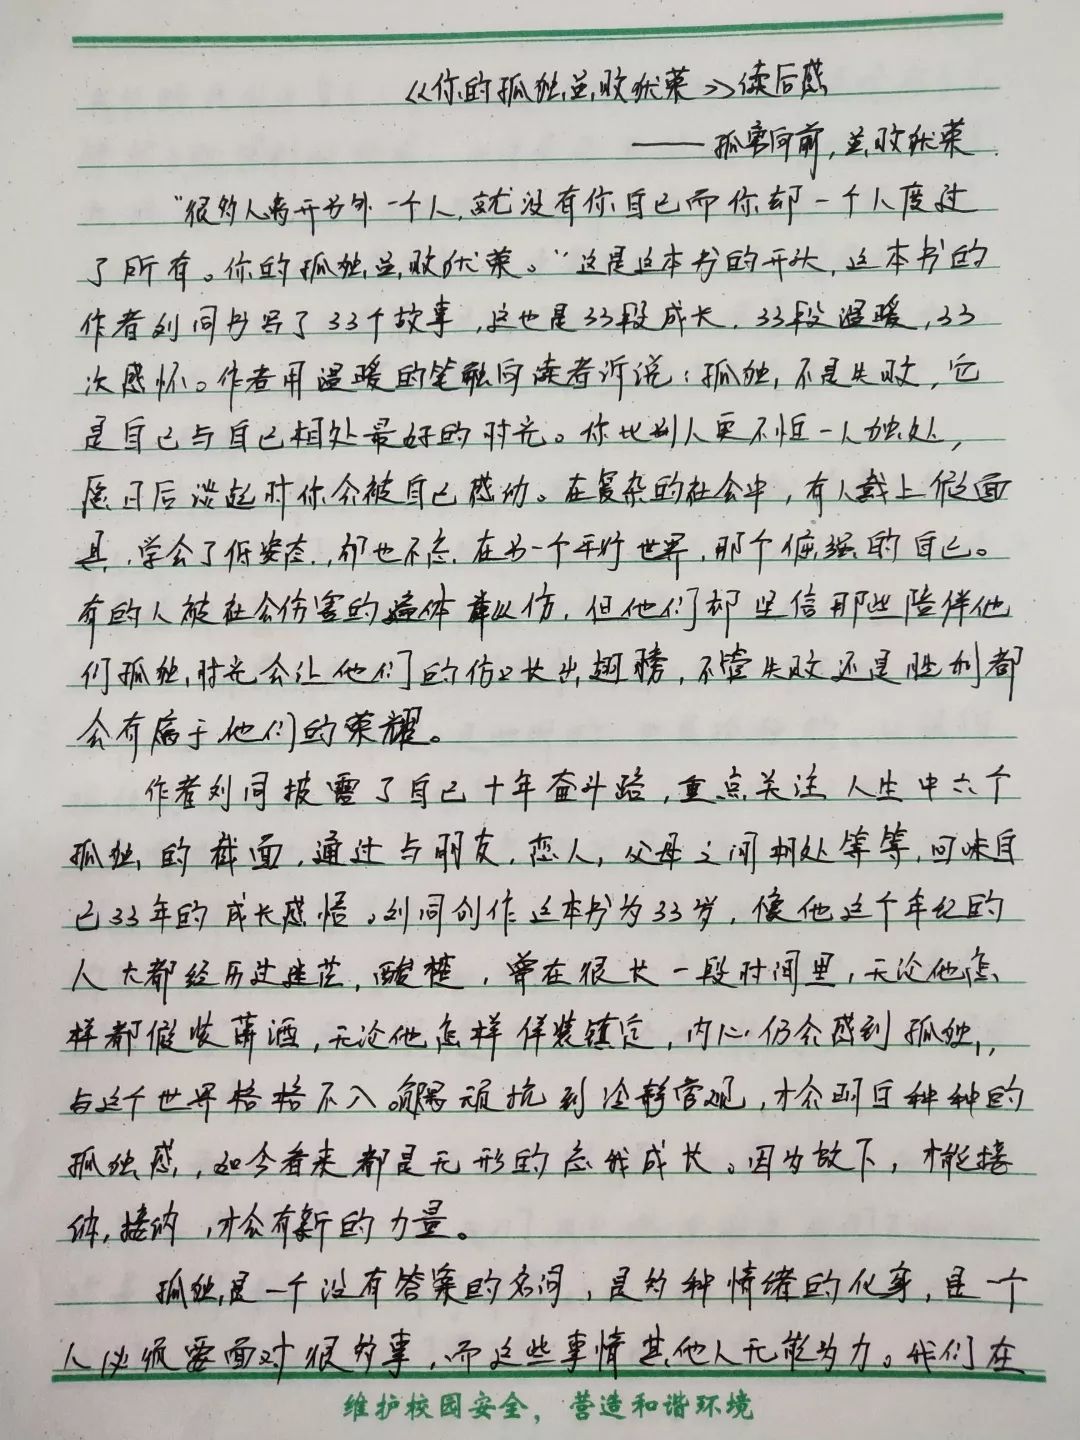 《你的孤独,虽败犹荣》读后感
——孤寄向前,虽败犹荣.
"很多人离开另外一个人,就没有你自己而你却一个人度过
了所有。你的孤独虽败犹荣。"这是这本书的开头,这本书的
作者刘同书写了33个故事,这也是33段成长,33段温暖,33
次感怀。作者用温暖的笔融向读者诉说:孤独,不是失败,它
是自己与自己相处最好的时光。你比别人更不怕一人独处,
愿日后谈起时你会被自己感动。在复杂的社会中,有人戴上假面
具,学会了低姿态,却也不忘,在另一个平行世界,那个倔强的自己。
有的人被社会伤害的遍体鳞伤,但他们却坚信那些陪伴他
们孤独,时光会让他们的伤口长出翅膀,不管失败还是胜利都
会有属于他们的荣耀。
作者刘同披露了自己十年奋斗路,重点关注人生中六个
孤独的截面,通过与朋友,恋人,父母之间相处等等,回味自
己33年的成长感悟。刘同创作这本书为33岁,像他这个年纪的
人大都经历过迷茫,酸楚,曾在很长一段时间里,无论他怎
样都假装萧洒,无论他怎样佯装镇定,内心仍会感到孤独,
与这个世界格格不入。顽抗到冷静旁观,才会明白种种的
孤独感,如今看来都是无形的忘我成长。因为放下,才能接
纳,接纳,才会有新的力量。
孤独,是一个没有答案的名词,是多种情绪的化身,是一个
人必须要面对很多事,而这些事情其他人无能为力。我们在
维护校园安全,营造和谐环境